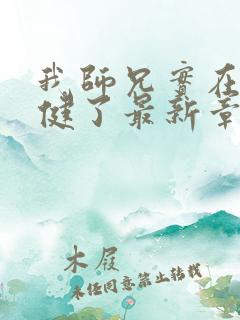 我師兄實在
健了最新章
木屐
未经同意禁止转载